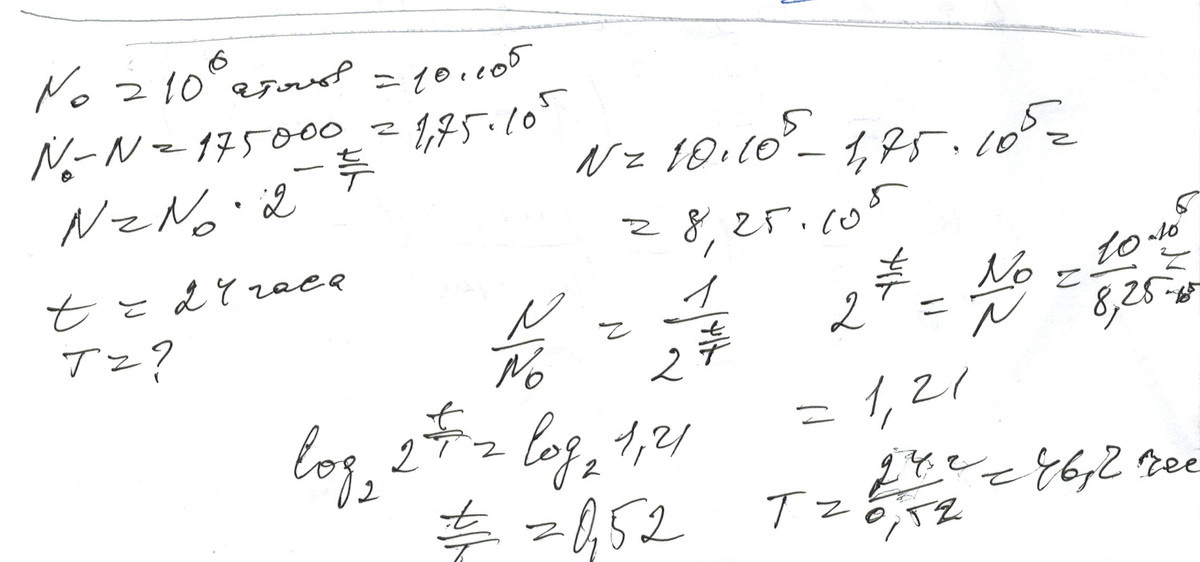 N₀ = 10⁶ атомов = 10·10⁵
N₀ - N = 175000 = 1,75·10⁵
N = N₀ · 2^(-t/T)
t = 24 часа
T = ?
N = 10·10⁵ - 1,75·10⁵ =
= 8,25·10⁵
N/N₀ = 1/2^(t/T)
2^(t/T) = N₀/N = 10·10⁵/8,25·10⁵ =
= 1,21
log₂ 2^(t/T) = log₂ 1,21
t/T = 0,52
T = 24/0,52 = 46,2